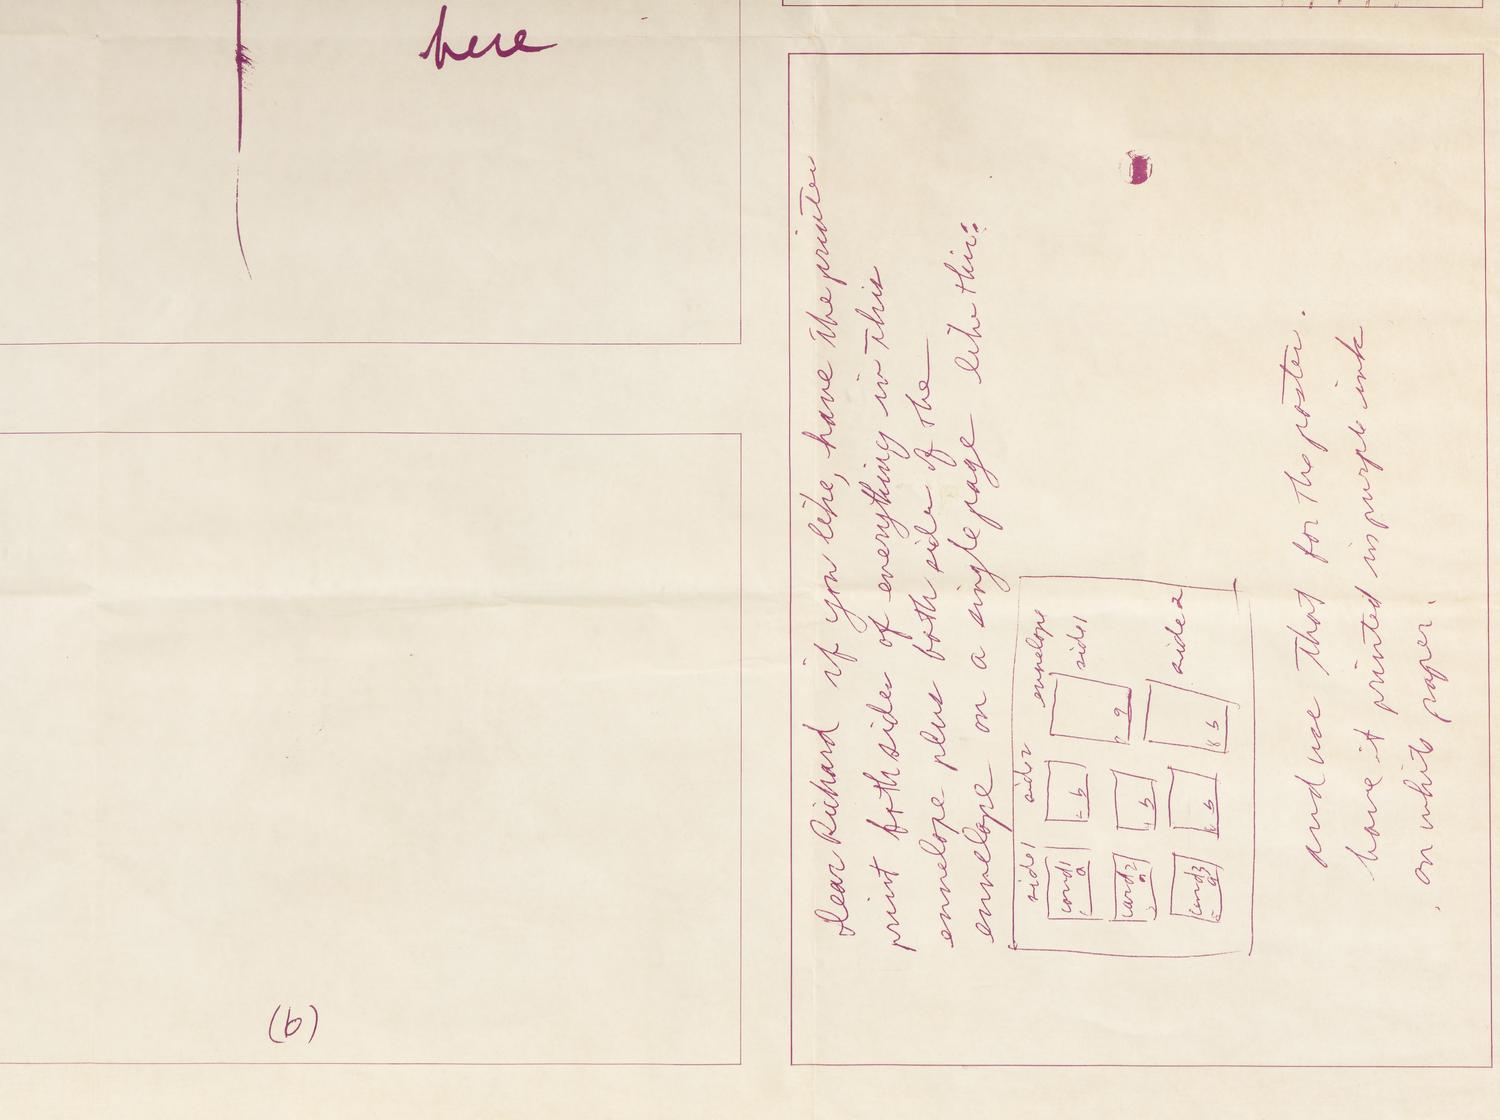 here
(b)
Dear Richard if you like, have the printer
print both sides of everything in this
envelope plus both sides of the
envelope on a single page like this:
side 1 side 2 envelope
side 1
card 1 a b a
card 2 a b
side 2
card 3 a b b
and use that for the poster.
have it printed in purple ink
on white paper.